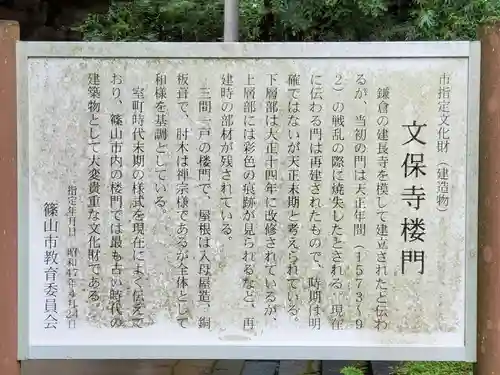 市指定文化財（建造物）
文保寺楼門
鎌倉の建長寺を模して建立されたと伝わ
るが、当初の門は天正年間（1573～9
2）の戦乱の際に焼失したとされる。現在
に伝わる門は再建されたもので、時期は明
確ではないが天正末期と考えられている。
下層部は大正十四年に改修されているが、
上層部には彩色の痕跡が見られるなど、再
建時の部材が残されている。
三間一戸の楼門で、屋根は入母屋造、銅
板葺で、肘木は禅宗様であるが全体として
和様を基調としている。
室町時代末期の様式を現在によく伝えて
おり、篠山市内の楼門では最も古い時代の
建築物として大変貴重な文化財である。
指定年月日 昭和47年4月21日
篠山市教育委員会